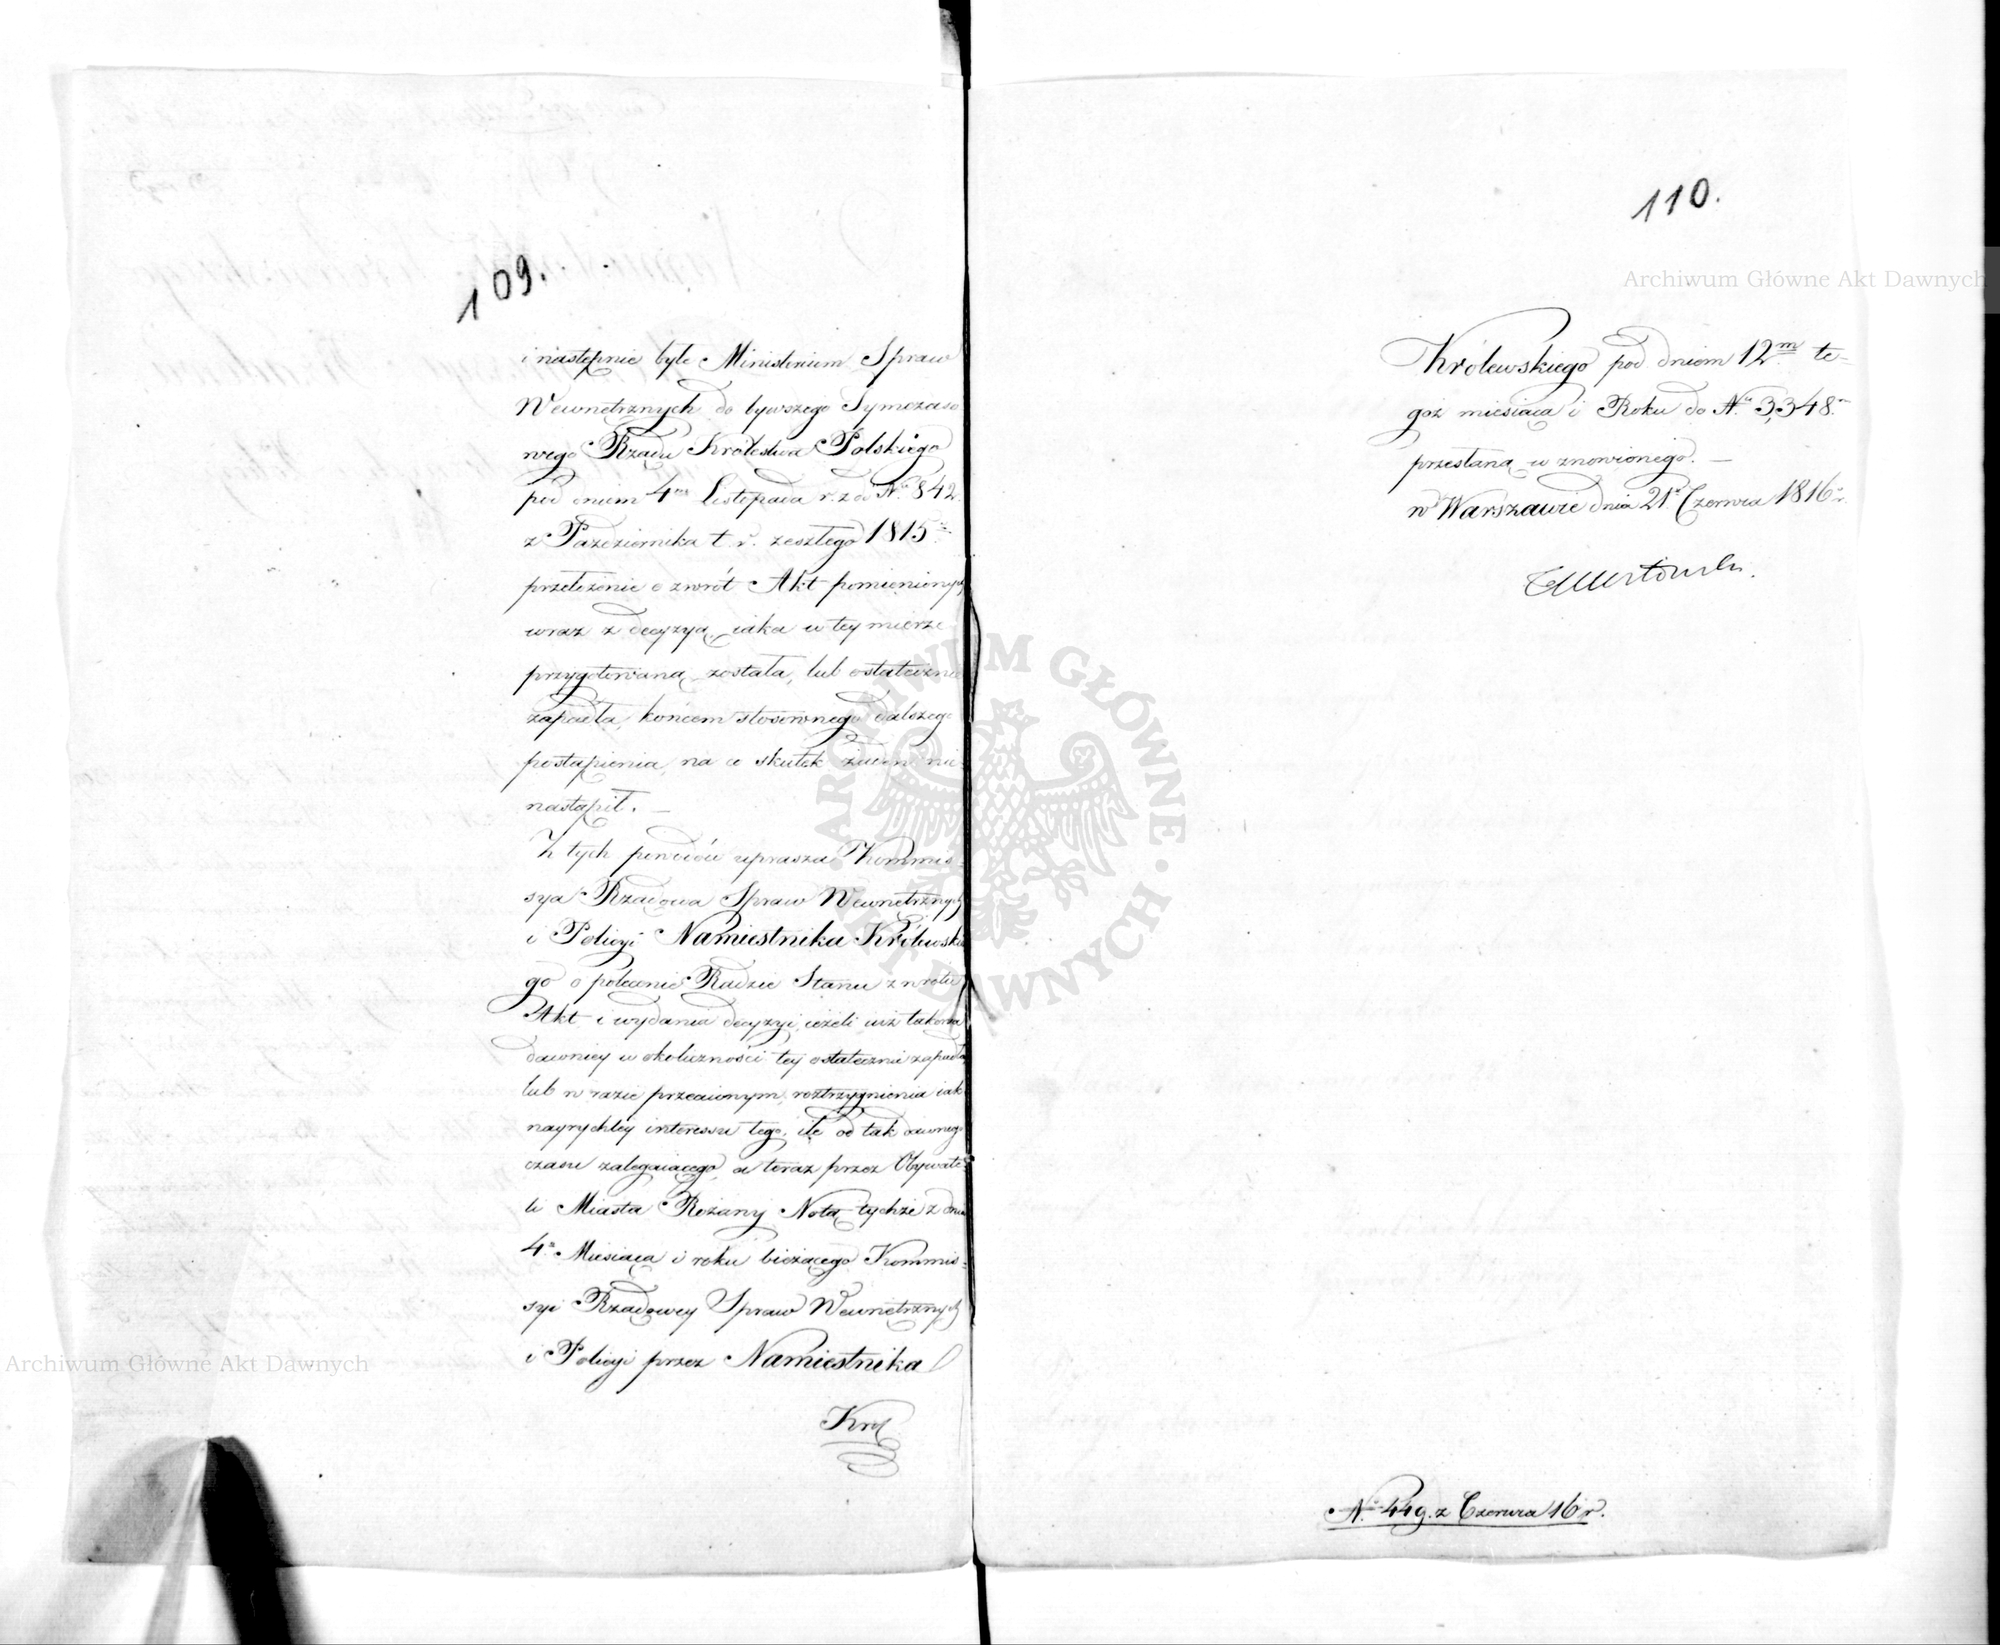 109.
i następnie byłe Ministerium Spraw
Wewnętrznych do bywszego Tymczaso
wego Rządu Królestwa Polskiego
pod dniem 4m Listopada r. z. do No 842
z Pazdziernika t. r. zeszłego 1815
przełożenie o zwrót Akt pomienionych
wraz z decyzyą, iaka w tey mierze
przygotowaną została, lub ostatecznie
zapadła, końcem stosownego dalszego
postąpienia, na co skutek żaden nie
nastąpił. —
Z tych powodów uprasza Kommis
sya Rządowa Spraw Wewnętrznych
i Policyi Namiestnika Królewskie
go o polecenie Radzie Stanu zwrotu
Akt i wydania decyzyi, ieżeli iuż takowa
dawniey w okoliczności tey ostatecznie zapadła
lub w razie przeciwnym, roztrzygnienia iak
nayrychley interessu tego, ile od tak dawnego
czasu zalegaiącego, a teraz przez Obywate=
li Miasta Rożany Notą tychże z dnia
4o Miesiąca i roku bieżącego Kommis=
syi Rządowey Spraw Wewnętrznych
i Policyi przez Namiestnika
Król
110.
Królewskiego pod dniem 12m te=
goż miesiąca i Roku do No 3,348.
przesłaną wznowionego. —
w Warszawie dnia 21o Czerwca 1816 r.
No 449. z Czerwca 16 r.
Archiwum Główne Akt Dawnych
Archiwum Główne Akt Dawnych
ARCHIWUM GŁÓWNE · AKT DAWNYCH ·